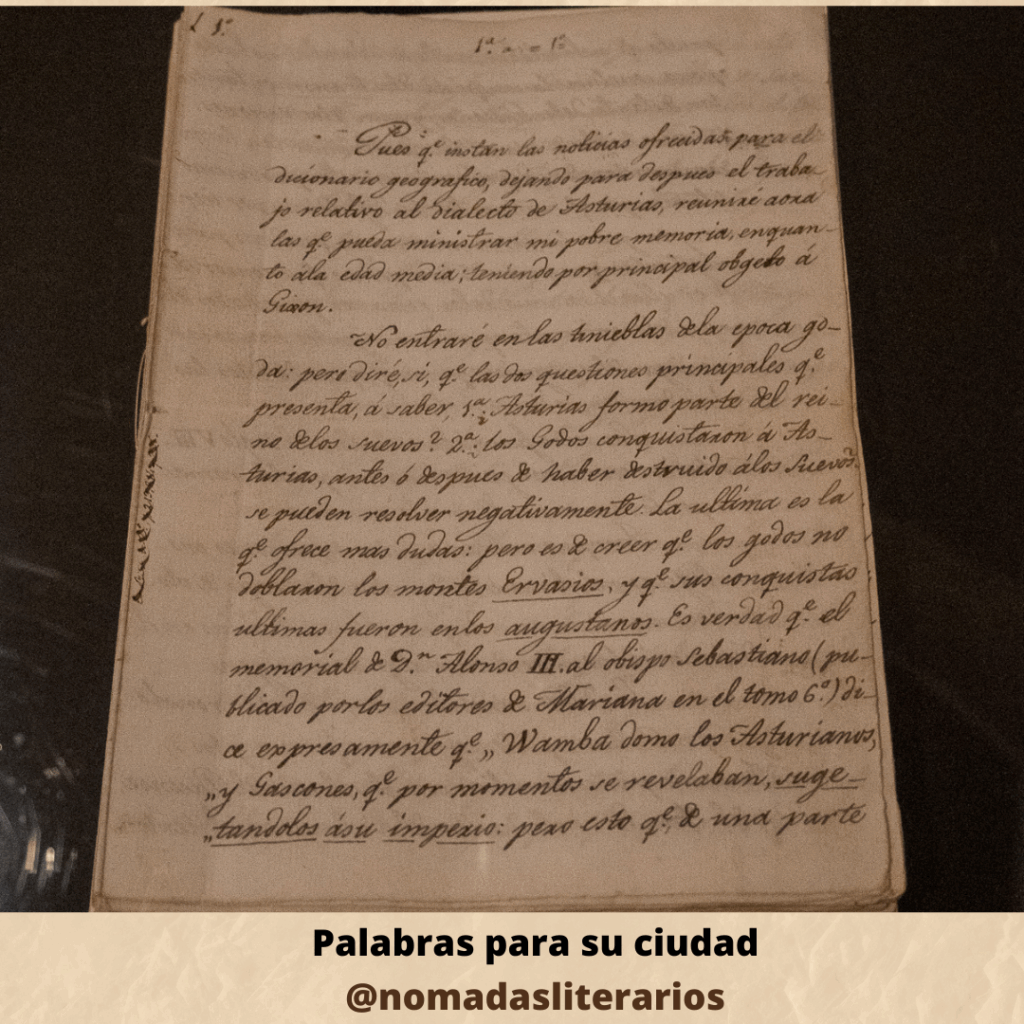 L 1º
1ª
Pues q.e instan las noticias ofrecidas para el
dicionario geografico, dejando para despues el traba-
jo relativo al dialecto de Asturias, reuniré aora
las q.e pueda ministrar mi pobre memoria, enquan-
to ála edad media; teniendo por principal obgeto á
Gixon.
No entraré en las tinieblas dela epoca go-
da: pero diré, si, q.e las dos questiones principales q.e
presenta, á saber, 1.ª Asturias formo parte del rei-
no delos suevos? 2.ª los Godos conquistaron á As-
turias, antes ó despues de haber destruido álos Suevos?
se pueden resolver negativamente. La ultima es la
q.e ofrece mas dudas: pero es de creer q.e los godos no
doblaron los montes Ervasios, y q.e sus conquistas
ultimas fueron enlos augustanos. Es verdad q.e el
memorial de D.n Alonso III. al obispo Sebastiano (pu-
blicado porlos editores de Mariana en el tomo 6.º) di-
ce expresamente q.e „Wamba domo los Asturianos,
„y Gascones, q.e por momentos se revelaban, suge-
„tandolos ásu imperio: pero esto q.e de una parte
Palabras para su ciudad
@nomadasliterarios